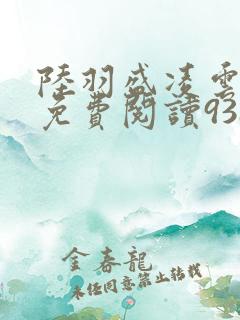 陸羽盛凌雲
免費閱讀93
金春龍
未經同意禁止轉載